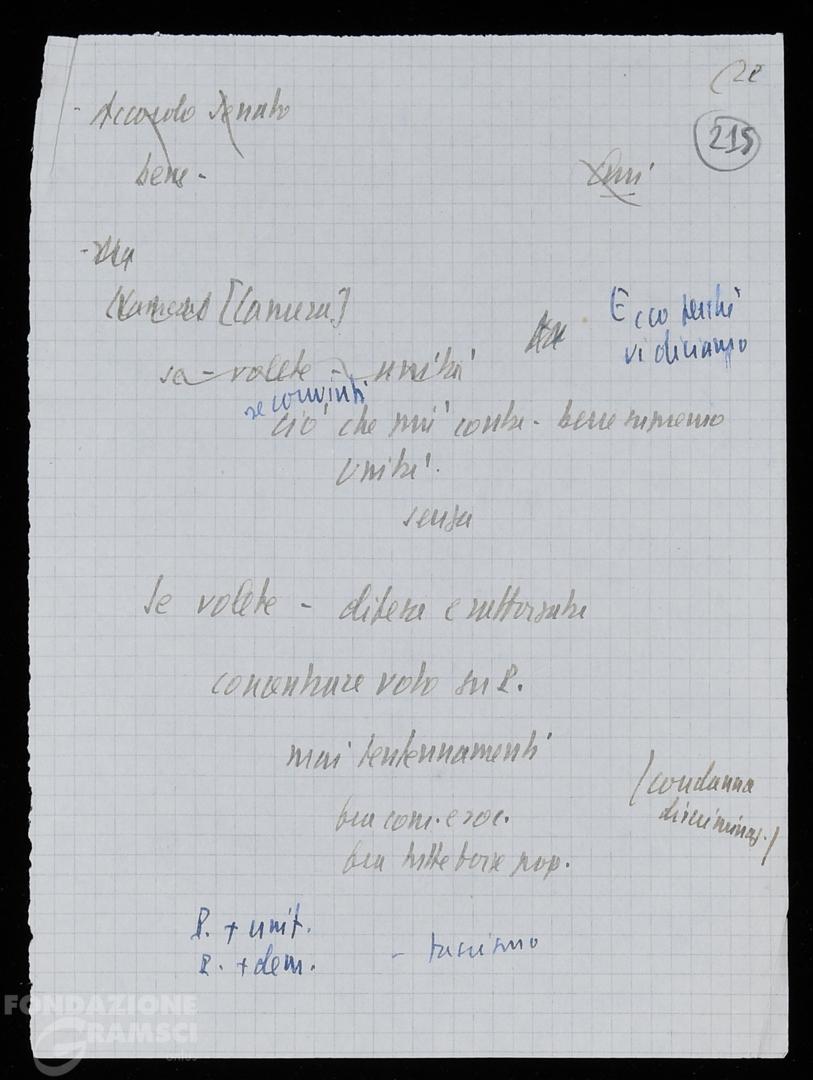 22
215
- Accordo Senato
bene -
- Ma
[Camera]
Ecco perché
vi diciamo
se volete - unità
se convinti
ciò che più conta - bene supremo
Unità.
senza
Se volete - difesa e rafforzare
concentrare voto su P.
mai tentennamenti
fra com. e soc.
fra tutte forze pop.
(condanna
discriminaz.)
P. + unit.
P. + dem.
- fascismo
FONDAZIONE
GRAMSCI
ONLUS